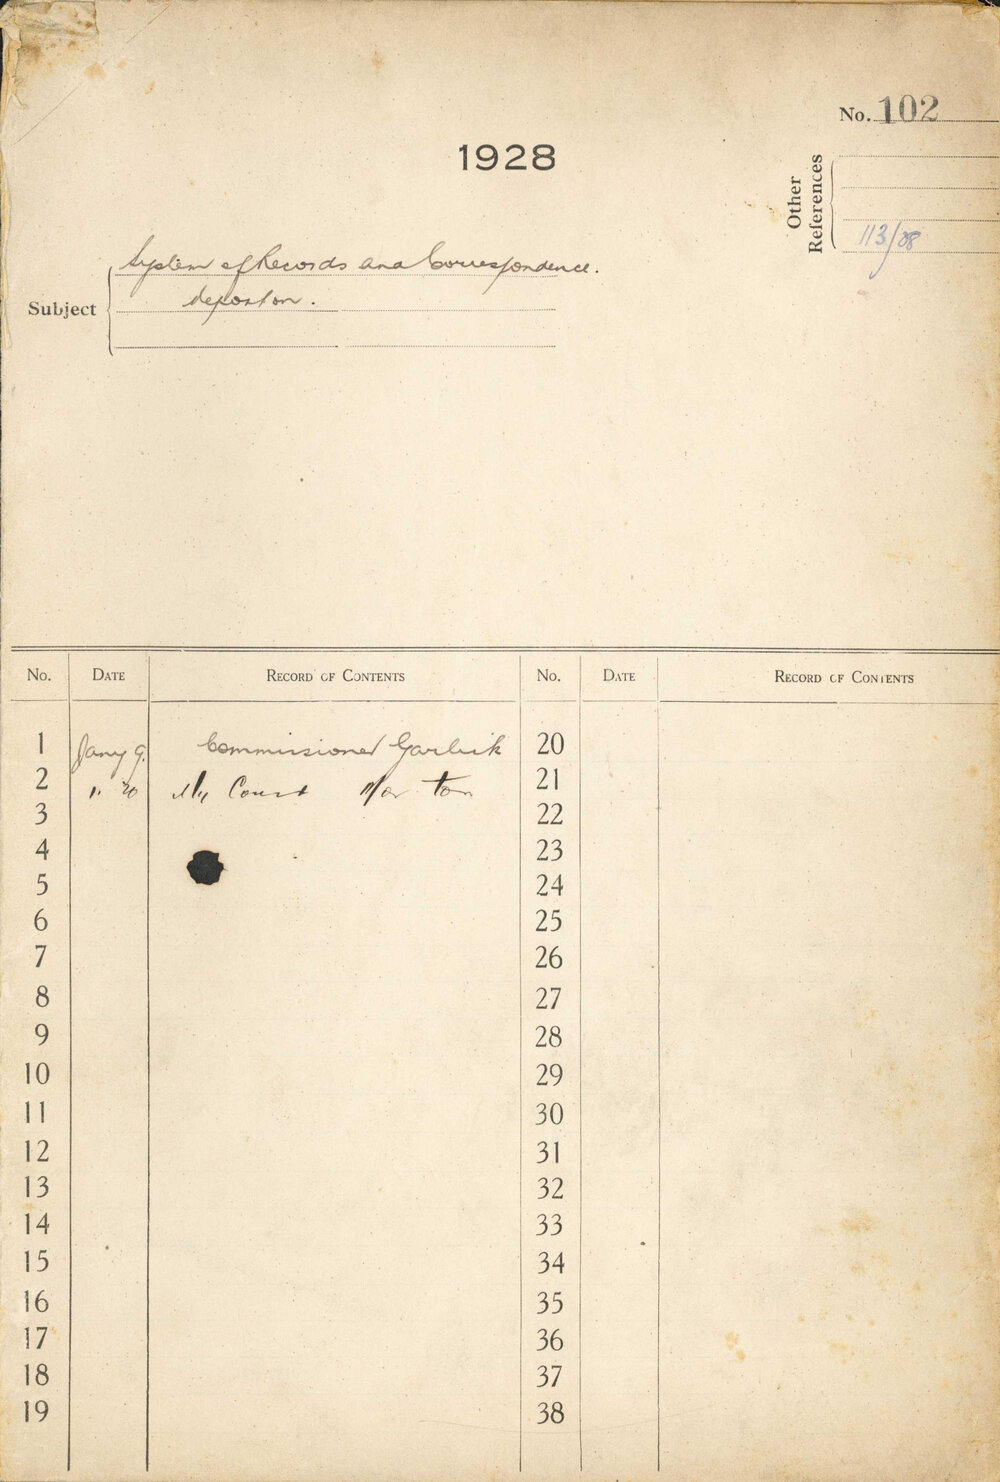 No. 102
1928
Other References
113/28
Subject
System of Records and Correspondence.
report on.
No. Date Record of Contents No. Date Record of Contents
1 Jany 9. Commissioner Garlick 20
2 " 20 Court 21
3 22
4 23
5 24
6 25
7 26
8 27
9 28
10 29
11 30
12 31
13 32
14 33
15 34
16 35
17 36
18 37
19 38